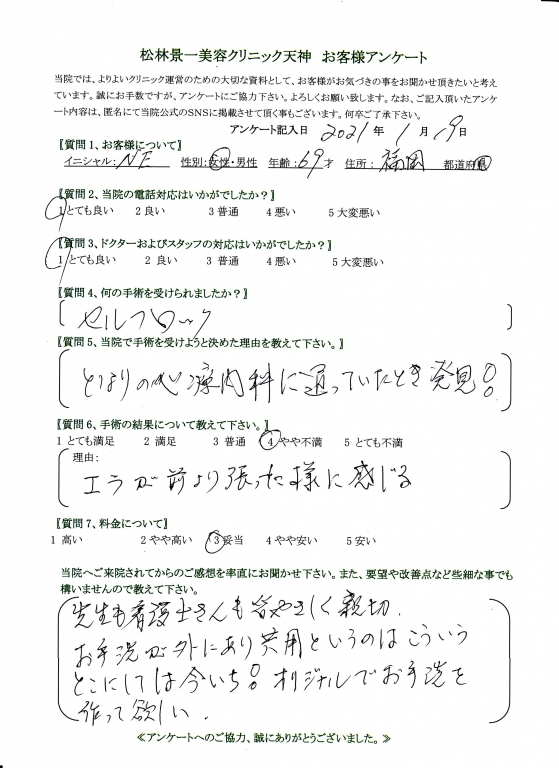 松林景一美容クリニック天神 お客様アンケート
当院では、よりよいクリニック運営のための大切な資料として、お客様がお気づきの事をお聞かせ頂きたいと考え
ています。誠にお手数ですが、アンケートにご協力下さい。よろしくお願い致します。なお、ご記入頂いたアンケ
ート内容は、匿名にて当院公式のSNSに掲載させて頂く事もございます。何卒ご了承下さい。
アンケート記入日 2021年 1月 19日
【質問1、お客様について】
イニシャル: NE 性別:女性・男性 年齢:69才 住所: 福岡 都道府県
【質問2、当院の電話対応はいかがでしたか?】
1とても良い 2良い 3普通 4悪い 5大変悪い
【質問3、ドクターおよびスタッフの対応はいかがでしたか?】
1 とても良い 2 良い 3 普通 4悪い 5大変悪い
【質問4、何の手術を受けられましたか?】
セルフロック
【質問5、当院で手術を受けようと決めた理由を教えて下さい。】
となりの心療内科に通っていたとき発見!!
【質問6、手術の結果について教えて下さい。】
1 とても満足 2 満足 3 普通 4やや不満 5 とても不満
理由:
エラが前より張った様に感じる
【質問7、料金について】
1 高い 2 やや高い 3妥当 4 やや安い 5 安い
当院へご来院されてからのご感想を率直にお聞かせ下さい。また、要望や改善点など些細な事でも
構いませんので教えて下さい。
先生も看護士さんも皆やさしく親切.
お手洗が外にあり共用というのはこういう
とこにしては今いち!! オリジナルでお手洗を
作って欲しい.
≪アンケートへのご協力、誠にありがとうございました。≫